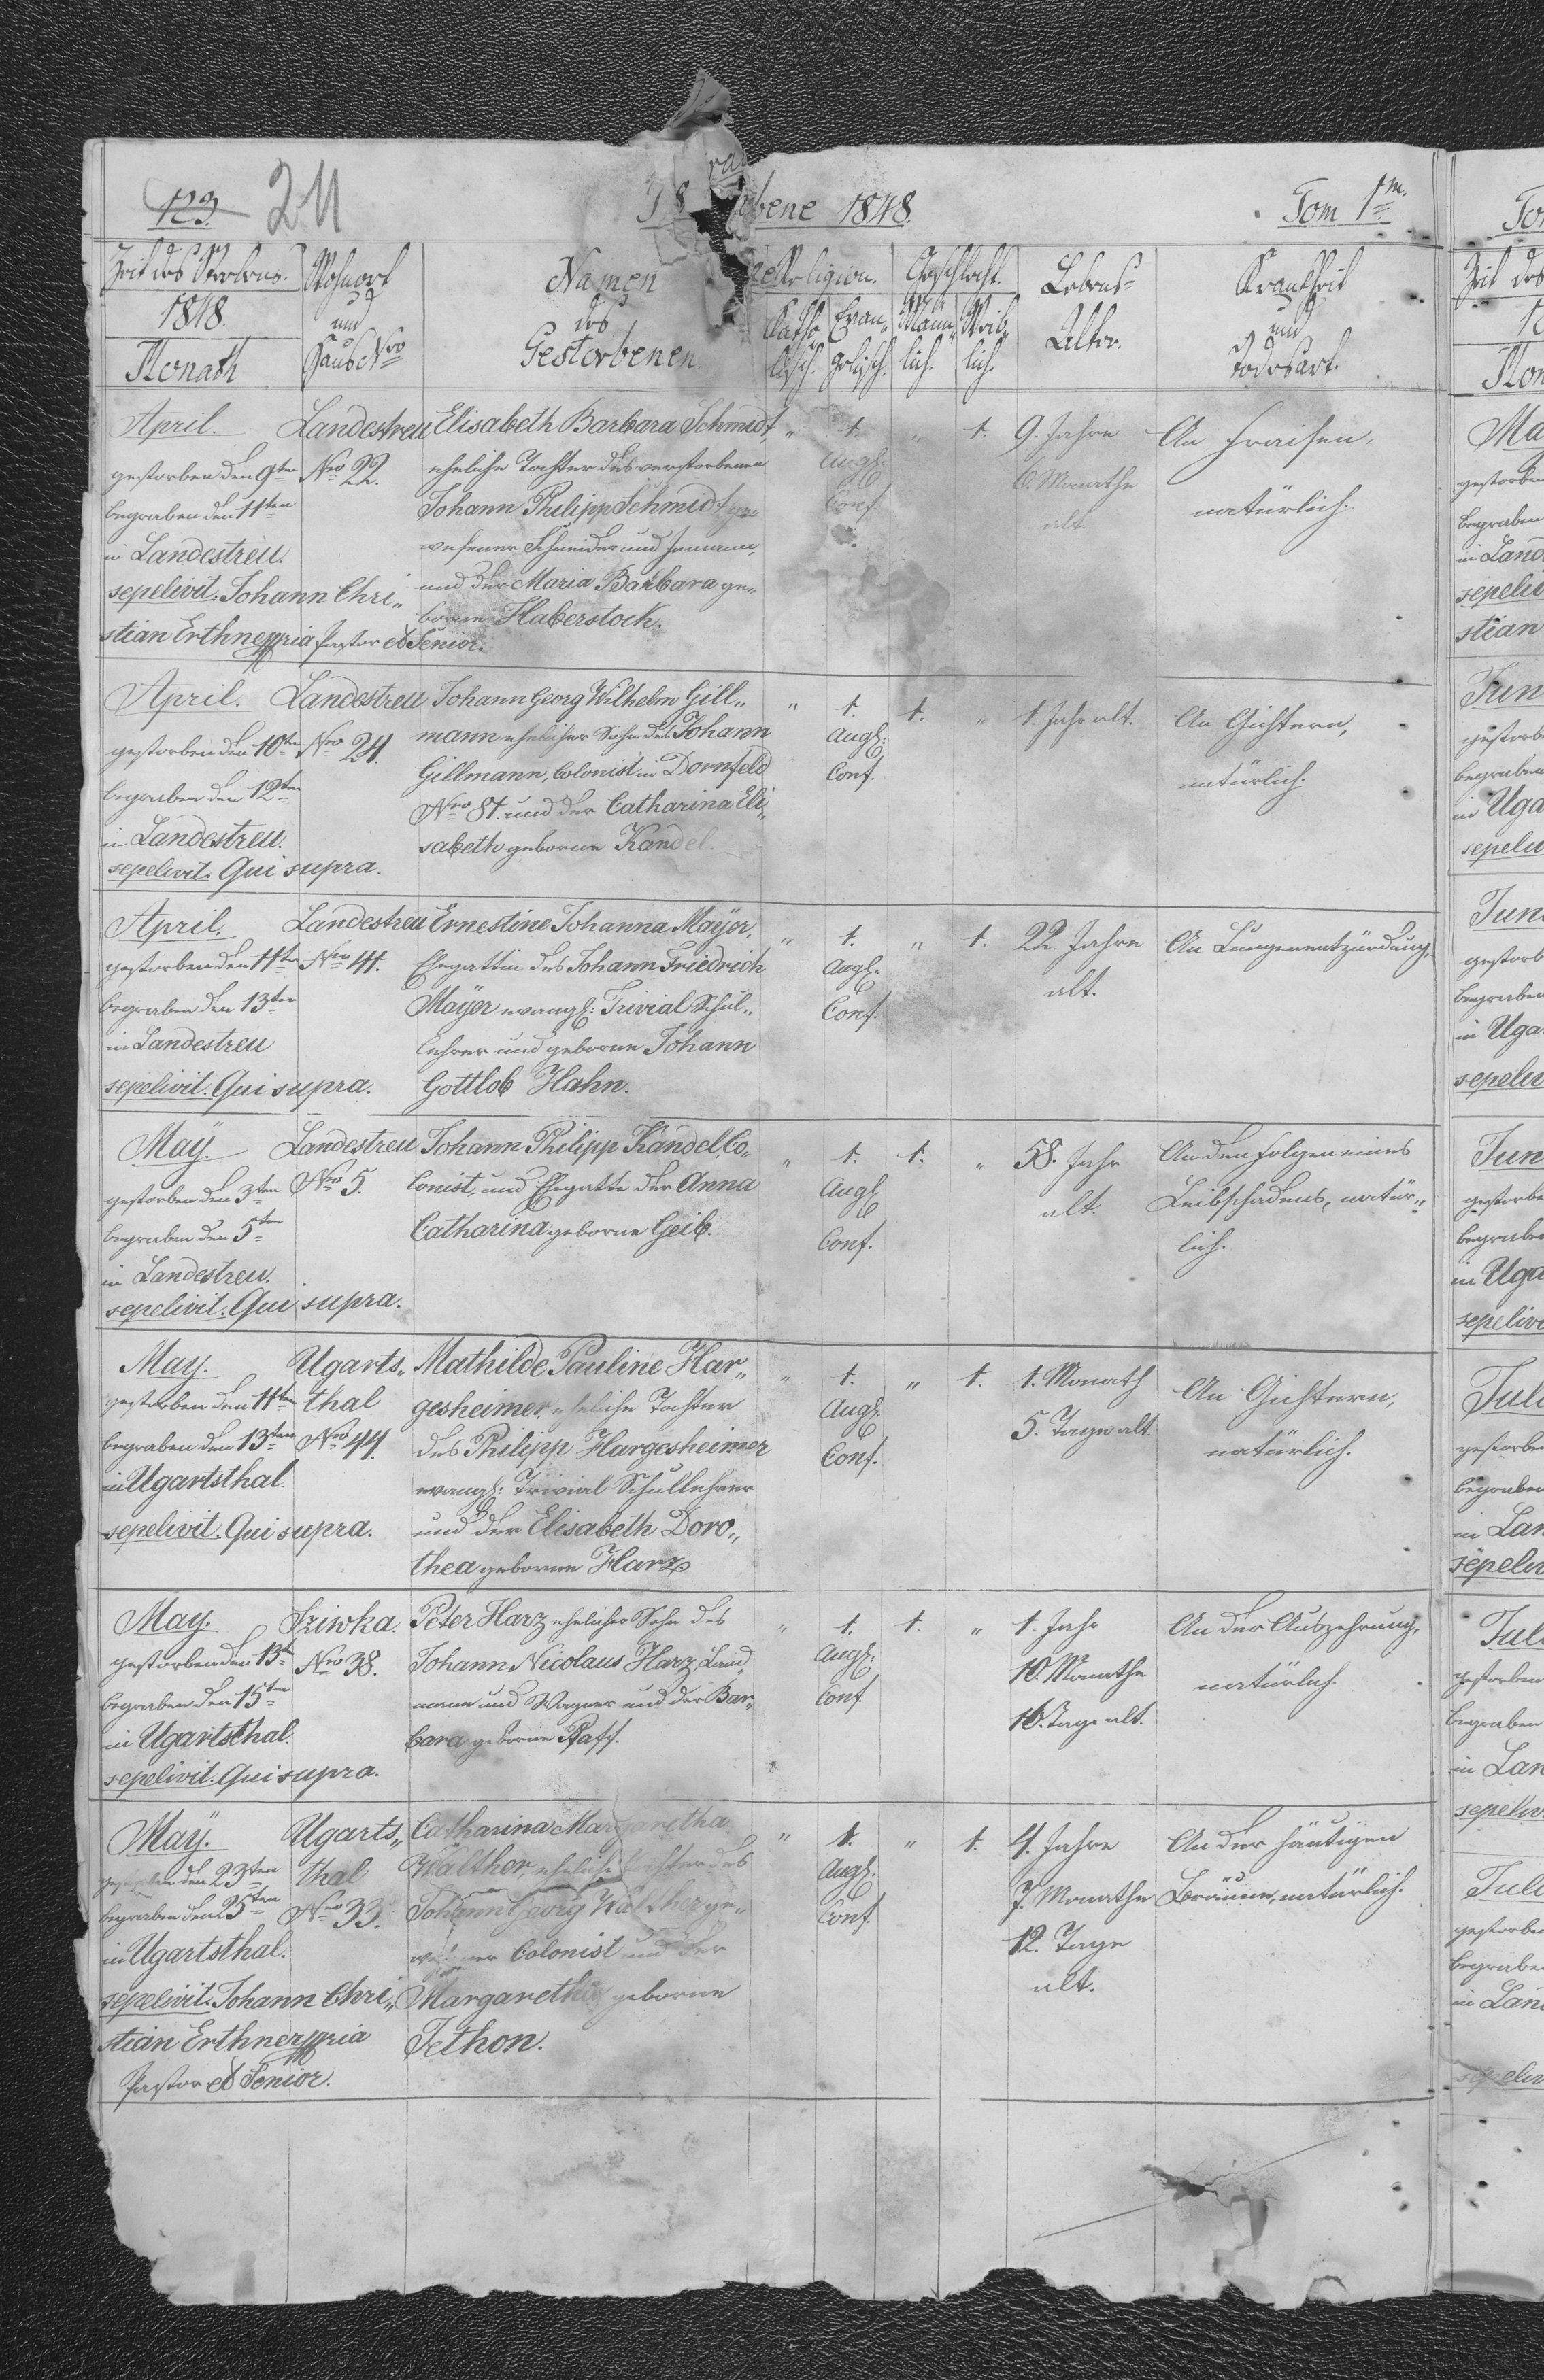 123. 24
Gestorbene 1848. Tom 1m.
Zeit des Sterbens.
1848.
Monath
Wohnort
und
Haus Nro
Namen
des
Gestorbenen.
Religion.
Katho„
lisch.
Evan„
gelisch.
Geschlecht.
Männ„
lich.
Weib„
lich.
Lebens-
Alter.
Krankheit
und
Todesart.
April.
gestorben den 9ten
begraben den 11ten
in Landestreu.
sepelivit. Johann Chri„
stian Erthner mpria Pastor et Senior.
Landestreu
Nro 22.
Elisabeth Barbara Schmidt,
eheliche Tochter des verstorbenen
Johann Philipp Schmidt ge„
wesener Schneider und Inmann,
und der Maria Barbara ge„
borene Haberstock.
„ 1. „ 1.
Augs.
Conf.
9. Jahre
6. Monathe
alt.
An Fraisen,
natürlich.
April.
gestorben den 10ten
begraben den 12ten
in Landestreu.
sepelivit. Qui supra.
Landestreu
Nro 24.
Johann Georg Wilhelm Gill„
mann ehelicher Sohn des Johann
Gillmann, Colonist in Dornfeld
Nro 81. und der Catharina Eli„
sabeth geborene Kandel.
„ 1. 1. „
Augs:
Conf.
1. Jahr alt.
An Gichtern,
natürlich.
April.
gestorben den 11ten
begraben den 13ten
in Landestreu
sepelivit. Qui supra.
Landestreu
Nro 41.
Ernestine Johanna Mayer,
Ehegattin des Johann Friedrich
Mayer evangs: Trivial Schul„
lehrer und geborene Johann
Gottlob Hahn.
„ 1. „ 1.
Augs.
Conf.
22. Jahre
alt.
An Lungenentzündung.
Maÿ.
gestorben den 3ten
begraben den 5ten
in Landestreu.
sepelivit. Qui supra.
Landestreu
Nro 5.
Johann Philipp Kandel, Co„
lonist, und Ehegatte der Anna
Catharina geborene Geib.
„ 1. 1. „
Augs
Conf.
58. Jahr
alt.
An den Folgen eines
Leibschadens, natür„
lich.
May.
gestorben den 11ten
begraben den 13ten
in Ugartsthal.
sepelivit. Qui supra.
Ugarts„
thal
Nro 44.
Mathilde Pauline Har„
gesheimer, eheliche Tochter
des Philipp Hargesheimer
evangs: Trivial Schullehrer
und der Elisabeth Doro„
thea geborene Harz
„ 1. „ 1.
Augs.
Conf.
1. Monath
5. Tage alt.
An Gichtern,
natürlich.
May.
gestorben den 13ten
begraben den 15ten
in Ugartsthal.
sepelivit. Qui supra.
Sziwka.
Nro 38.
Peter Harz ehelicher Sohn des
Johann Nicolaus Harz, Land„
mann und Wagner und der Bar„
bara geborene Pfaff.
„ 1. 1. „
Augs.
Conf
1. Jahr
10. Monathe
16. Tage alt.
An der Auszehrung,
natürlich.
Maÿ.
gestorben den 23ten
begraben den 25ten
in Ugartsthal.
sepelivit. Johann Chri„
stian Erthner mpria
Pastor et Senior.
Ugarts„
thal
Nro 33.
Catharina Margaretha
Walther, eheliche Tochter des
Johann Georg Walther ge„
wesener Colonist und der
Margaretha geborene
Fethon.
„ 1. „ 1.
Augs.
Conf.
4. Jahre
7. Monathe
12. Tage
alt.
An der häutigen
Bräune, natürlich.